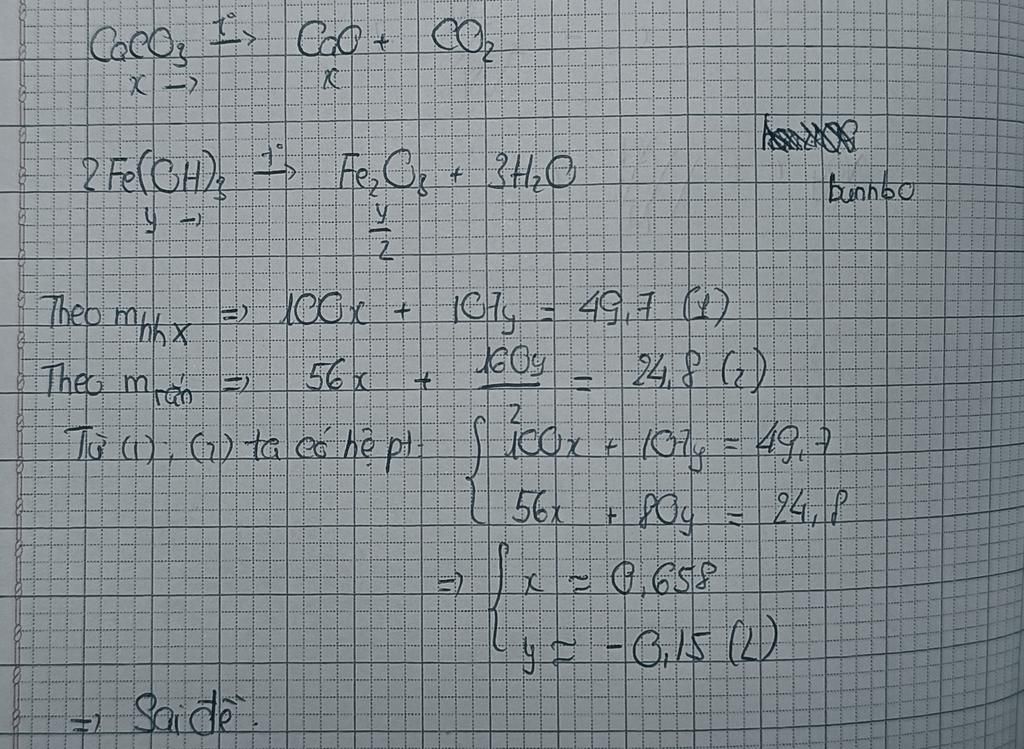 CaCO₃ —t°→ CaO + CO₂
x → x
2Fe(OH)₃ —t°→ Fe₂O₃ + 3H₂O
bunnbo
y → y/2
Theo m hh X => 100x + 107y = 49,7 (1)
Theo m rắn => 56x + 160y/2 = 24,8 (2)
Từ (1), (2) ta có hệ pt { 100x + 107y = 49,7
56x + 80y = 24,8
=> { x ≈ 0,658
y ≈ -0,15 (L)
=> Sai đề.